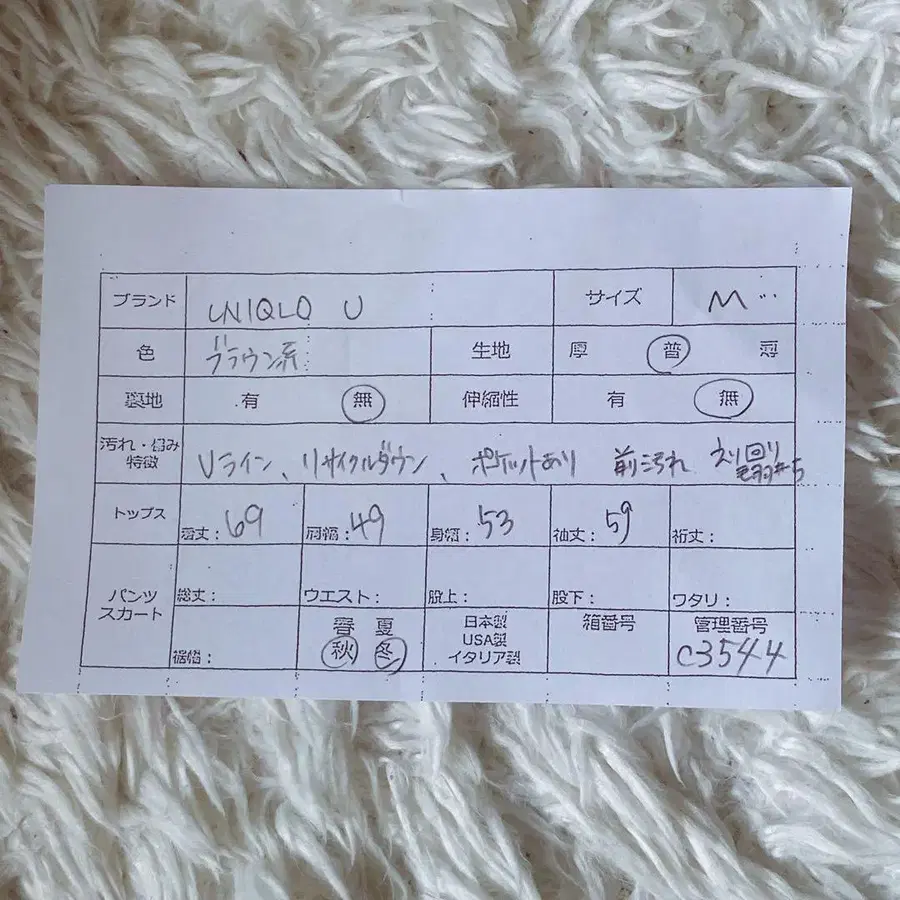 ブランド UNIQLO U サイズ M
色 ブラウン系 生地 厚 普 薄
裏地 有 無 伸縮性 有 無
汚れ・傷み
特徴 Uライン、リサイクルダウン、ポケットあり 前汚れ えり回り
トップス 着丈：69 肩幅：49 身幅：53 袖丈：59 裄丈：
パンツ
スカート 総丈： ウエスト：股上： 股下： ワタリ：
裾幅： 春 夏 秋 冬 日本製 USA製 イタリア製 箱番号 管理番号
C3544